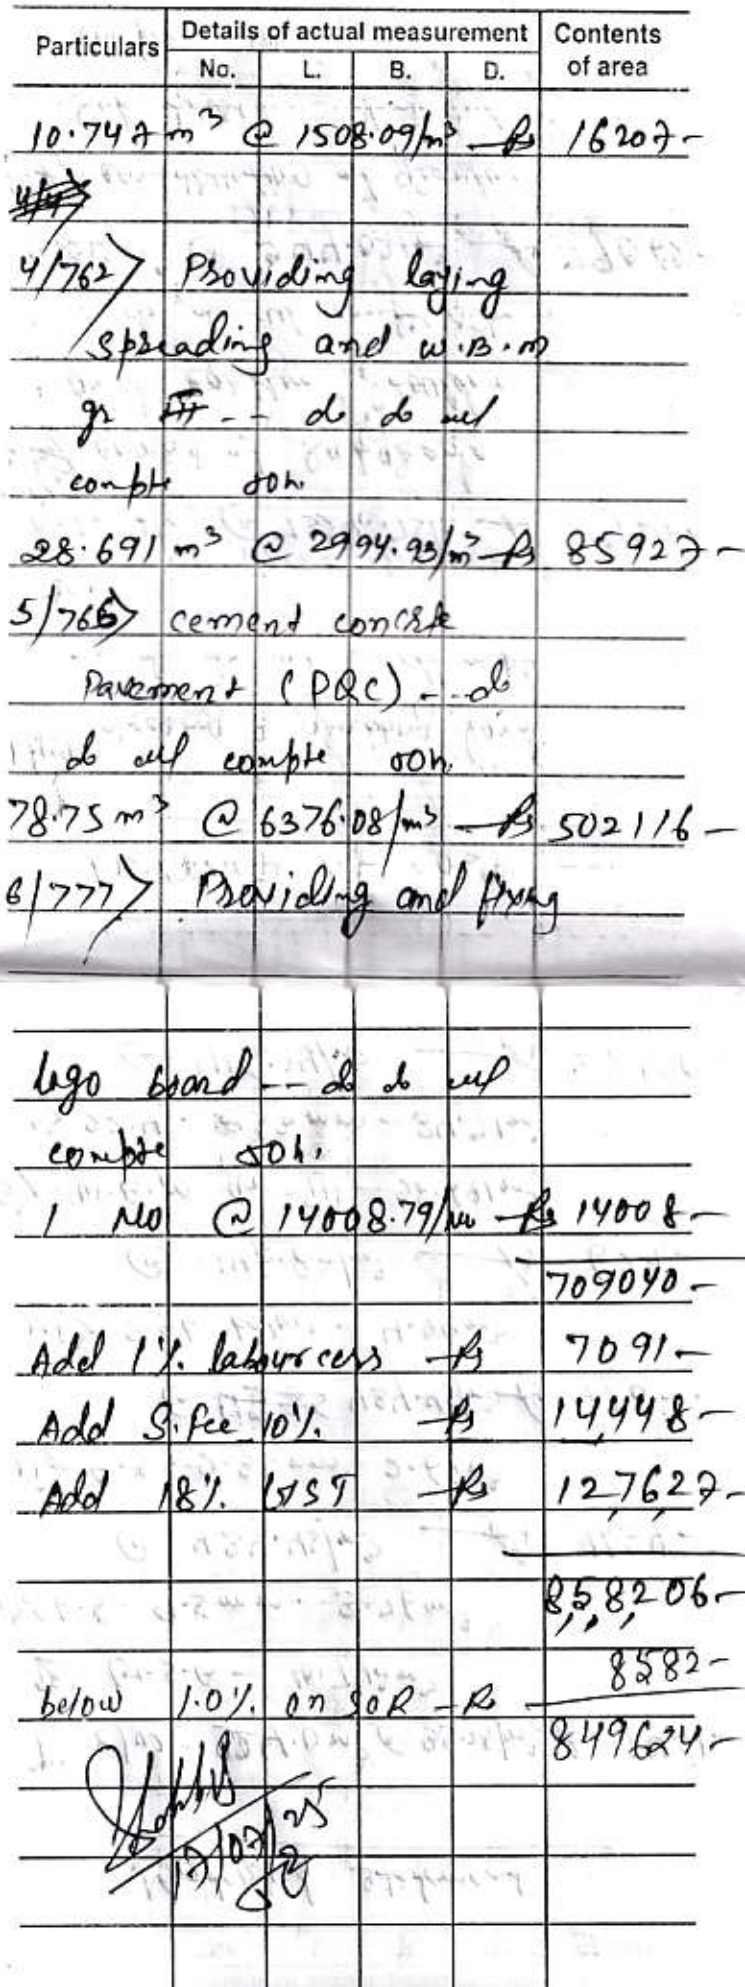 Particulars Details of actual measurement Contents of area
No. L. B. D.
10.747 m³ @ 1508.09/m³ — Rs 16207-
4/762> Providing laying
spreading and W.B.M
gr III -- do do all
comple job.
28.691 m³ @ 2994.93/m³ — Rs 85927-
5/766> cement concrete
Pavement (PQC) -- do
do all comple job.
78.75 m³ @ 6376.08/m³ — Rs 502116-
6/777> Providing and fixing
logo board -- do do all
comple job.
1 No @ 14008.79/No — Rs 14008-
709040-
Add 1% labour cess — Rs 7091-
Add S.fee 10% — Rs 14,448-
Add 18% GST — Rs 127627-
858206-
8582-
below 1.0% on SOR — Rs
849624-
17/07/25